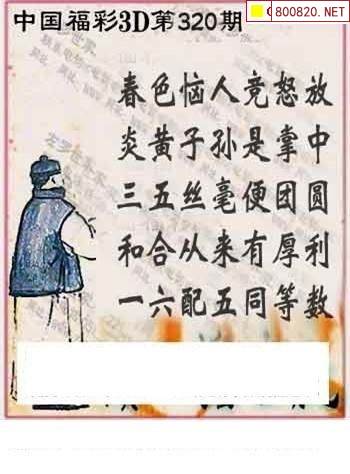 中国福彩3D第320期
800820.NET
春色恼人竞怒放
炎黄子孙是掌中
三五丝毫便团圆
和合从来有厚利
一六配五同等数